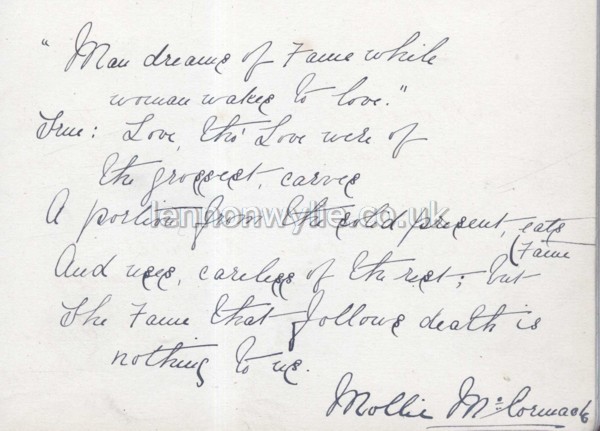 "Man dreams of Fame while
woman wakes to love."
True: Love, tho' Love were of
the grossest, carves
A portion from the solid present, eats
And uses, careless of the rest; but (Fame
The Fame that follows death is
nothing to us.
Mollie McCormack
lennonwylie.co.uk